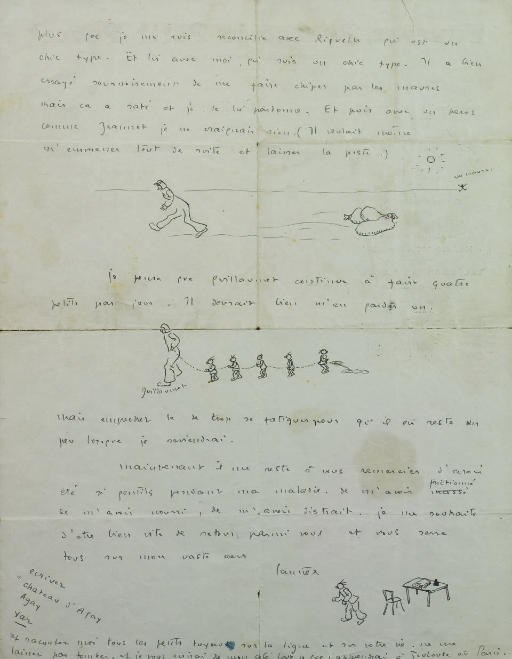 plus que je me suis reconcilié avec Riguelle qui est un
chic type. Et lui avec moi, qui suis un chic type. Il a bien
essayé sournoisement de me faire chiper par les maures
mais ça a raté et je le lui pardonne. Et puis avec un
comme je ne craignais rien (Il voulait même
m'emmener tout de suite et laisser la poste.)
un maure
je pense que guillaumet continue à faire quatre
petits par jour. Il devrait bien m'en garder un.
guillaumet
mais empecher le de trop se fatiguer pour qu'il en reste un
peu lorsque je reviendrai.
maintenant il me reste à vous remercier d'avoir
été si gentils pendant ma maladie. de m'avoir frictionné
de m'avoir nourri, de m'avoir distrait. je me souhaite
d'etre bien vite de retour parmi vous et vous serre
tous sur mon vaste cœur
ecrivez
chateau d'Agay
Agay
Var
et racontez moi tous les petits tuyaux sur la ligne et sur votre vie. ne me
laissez pas tomber, et je vous ecrirai de mon côté tout ce que j'apprendrai à Toulouse où Paris.